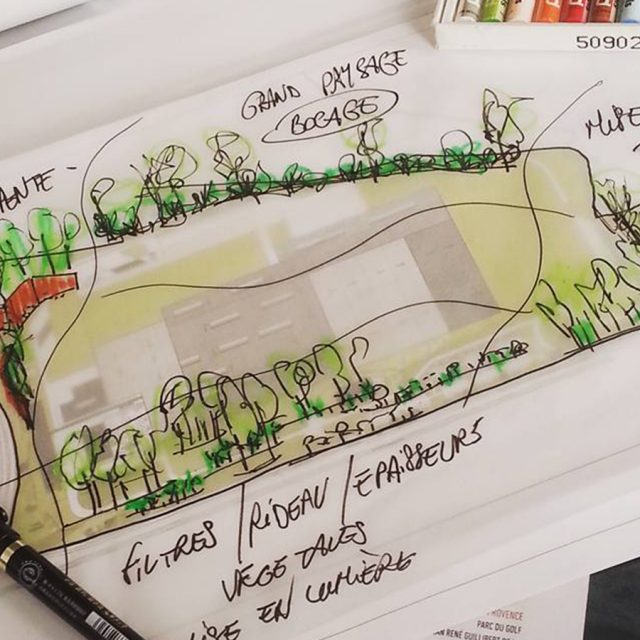 50902
GRAND PAYSAGE
BOCAGE
MISE
ANTE
FILTRES / RIDEAU / EPAISSEURS
VEGETALES
MISE EN LUMIÈRE
PROVENCE
PARC DU GOLF
AN RENÉ GUILLIBERT